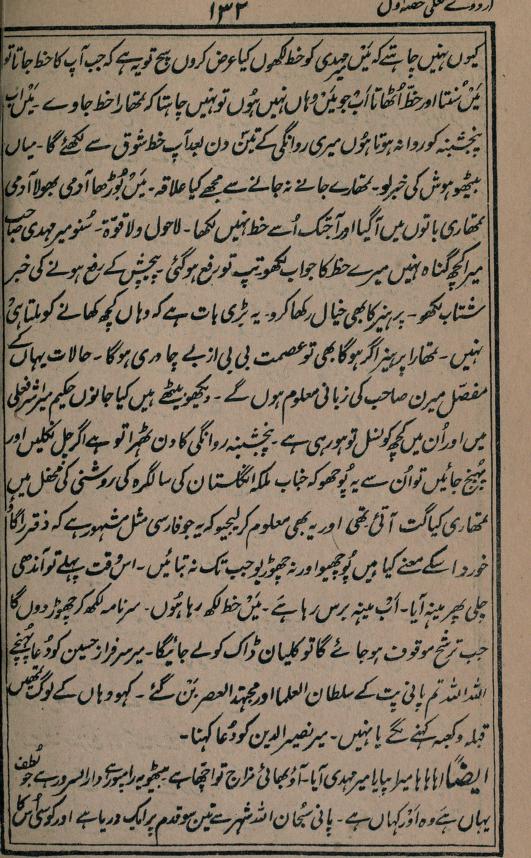 اردوے معلی حصہ اول
۱۳۲
کیوں نہیں چاہتے کہ مَیں میر مہدی کو خط لکھوں کیا عرض کروں سچ تو یہ ہے کہ جب آپ کا خط جاتا تو
مَیں سُنتا اور حظ اُٹھاتا اَب جو مَیں وہاں نہیں ہوں تو نہیں چاہتا کہ تمھارا خط جاوے ۔ مَیں اب
پنجشنبہ کو روانہ ہوتا ہوں میری روانگی کے تین دن بعد آپ خط شوق سے لکھئے گا ۔ میاں
بیٹھو ہوش کی خبر لو ۔ تمھارے جانے نہ جانے سے مجھے کیا علاقہ ۔ مَیں بُوڑھا آدمی بھولا آدمی
تمھاری باتوں میں آگیا اور آجتک اُسے خط نہیں لکھا ۔ لاحول ولا قوۃ ۔ سُنو میر مہدی صاحب
میرا کچھ گناہ نہیں میرے خط کا جواب لکھو تپ تو رفع ہو گئی پیچش کے رفع ہونے کی خبر
شتاب لکھو ۔ پرہیز کا بھی خیال رکھا کرو ۔ یہ بڑی بات ہے کہ وہاں کچھ کھانے کو ملتا ہی
نہیں ۔ تمھارا پرہیز اگر ہوگا بھی تو عصمت بی بی از بے چادری ہوگا ۔ حالات یہاں کے
مفصّل میرن صاحب کی زبانی معلوم ہوں گے ۔ دیکھو بیٹھے ہیں کیا جانوں حکیم میر اشرف علی
میں اور اُن میں کچھ کونسل تو ہو رہی ہے ۔ پنجشنبہ روانگی کا دن ٹھہرا تو ہے اگر چل نکلیں اور
پہنچ جائیں تو اُن سے یہ پُوچھو کہ جناب ملکہ انگلستان کی سالگرہ کی روشنی کی محفل میں
تمھاری کیا گت آئی تھی اور یہ بھی معلوم کر لیجیو کہ یہ جو فارسی مثل مشہور ہے کہ دفتر را گاؤ
خورد اسکے معنے کیا ہیں پُوچھیو اور نہ چھوڑیو جب تک نہ بتائیں ۔ اس وقت پہلے تو آندھی
چلی پھر مینہ آیا ۔ اَب مینہ برس رہا ہے ۔ مَیں خط لکھ رہا ہوں ۔ سرنامہ لکھ کر چھوڑ دوں گا
جب ترشح موقوف ہو جائے گا تو کلیان ڈاک کو لے جائیگا ۔ میر سرفراز حسین کو دُعا پہنچے
اللہ اللہ تم پانی پت کے سلطان العلما اور مجتہد العصر بَن گئے ۔ کہو وہاں کے لوگ تمھیں
قبلہ و کعبہ کہنے لگے یا نہیں ۔ میر نصیر الدین کو دُعا کہنا ۔
ایضًا اہاہاہا میرا پیارا میر مہدی آیا ۔ آؤ بھائی مزاج تو اچھا ہے بیٹھو یہ رامپور ہے دار السرور ہے جو لُطف
یہاں ہے وہ اَور کہاں ہے ۔ پانی سُبحان اللہ شہر سے تین سو قدم پر ایک دریا ہے اور کوسی اُس کا